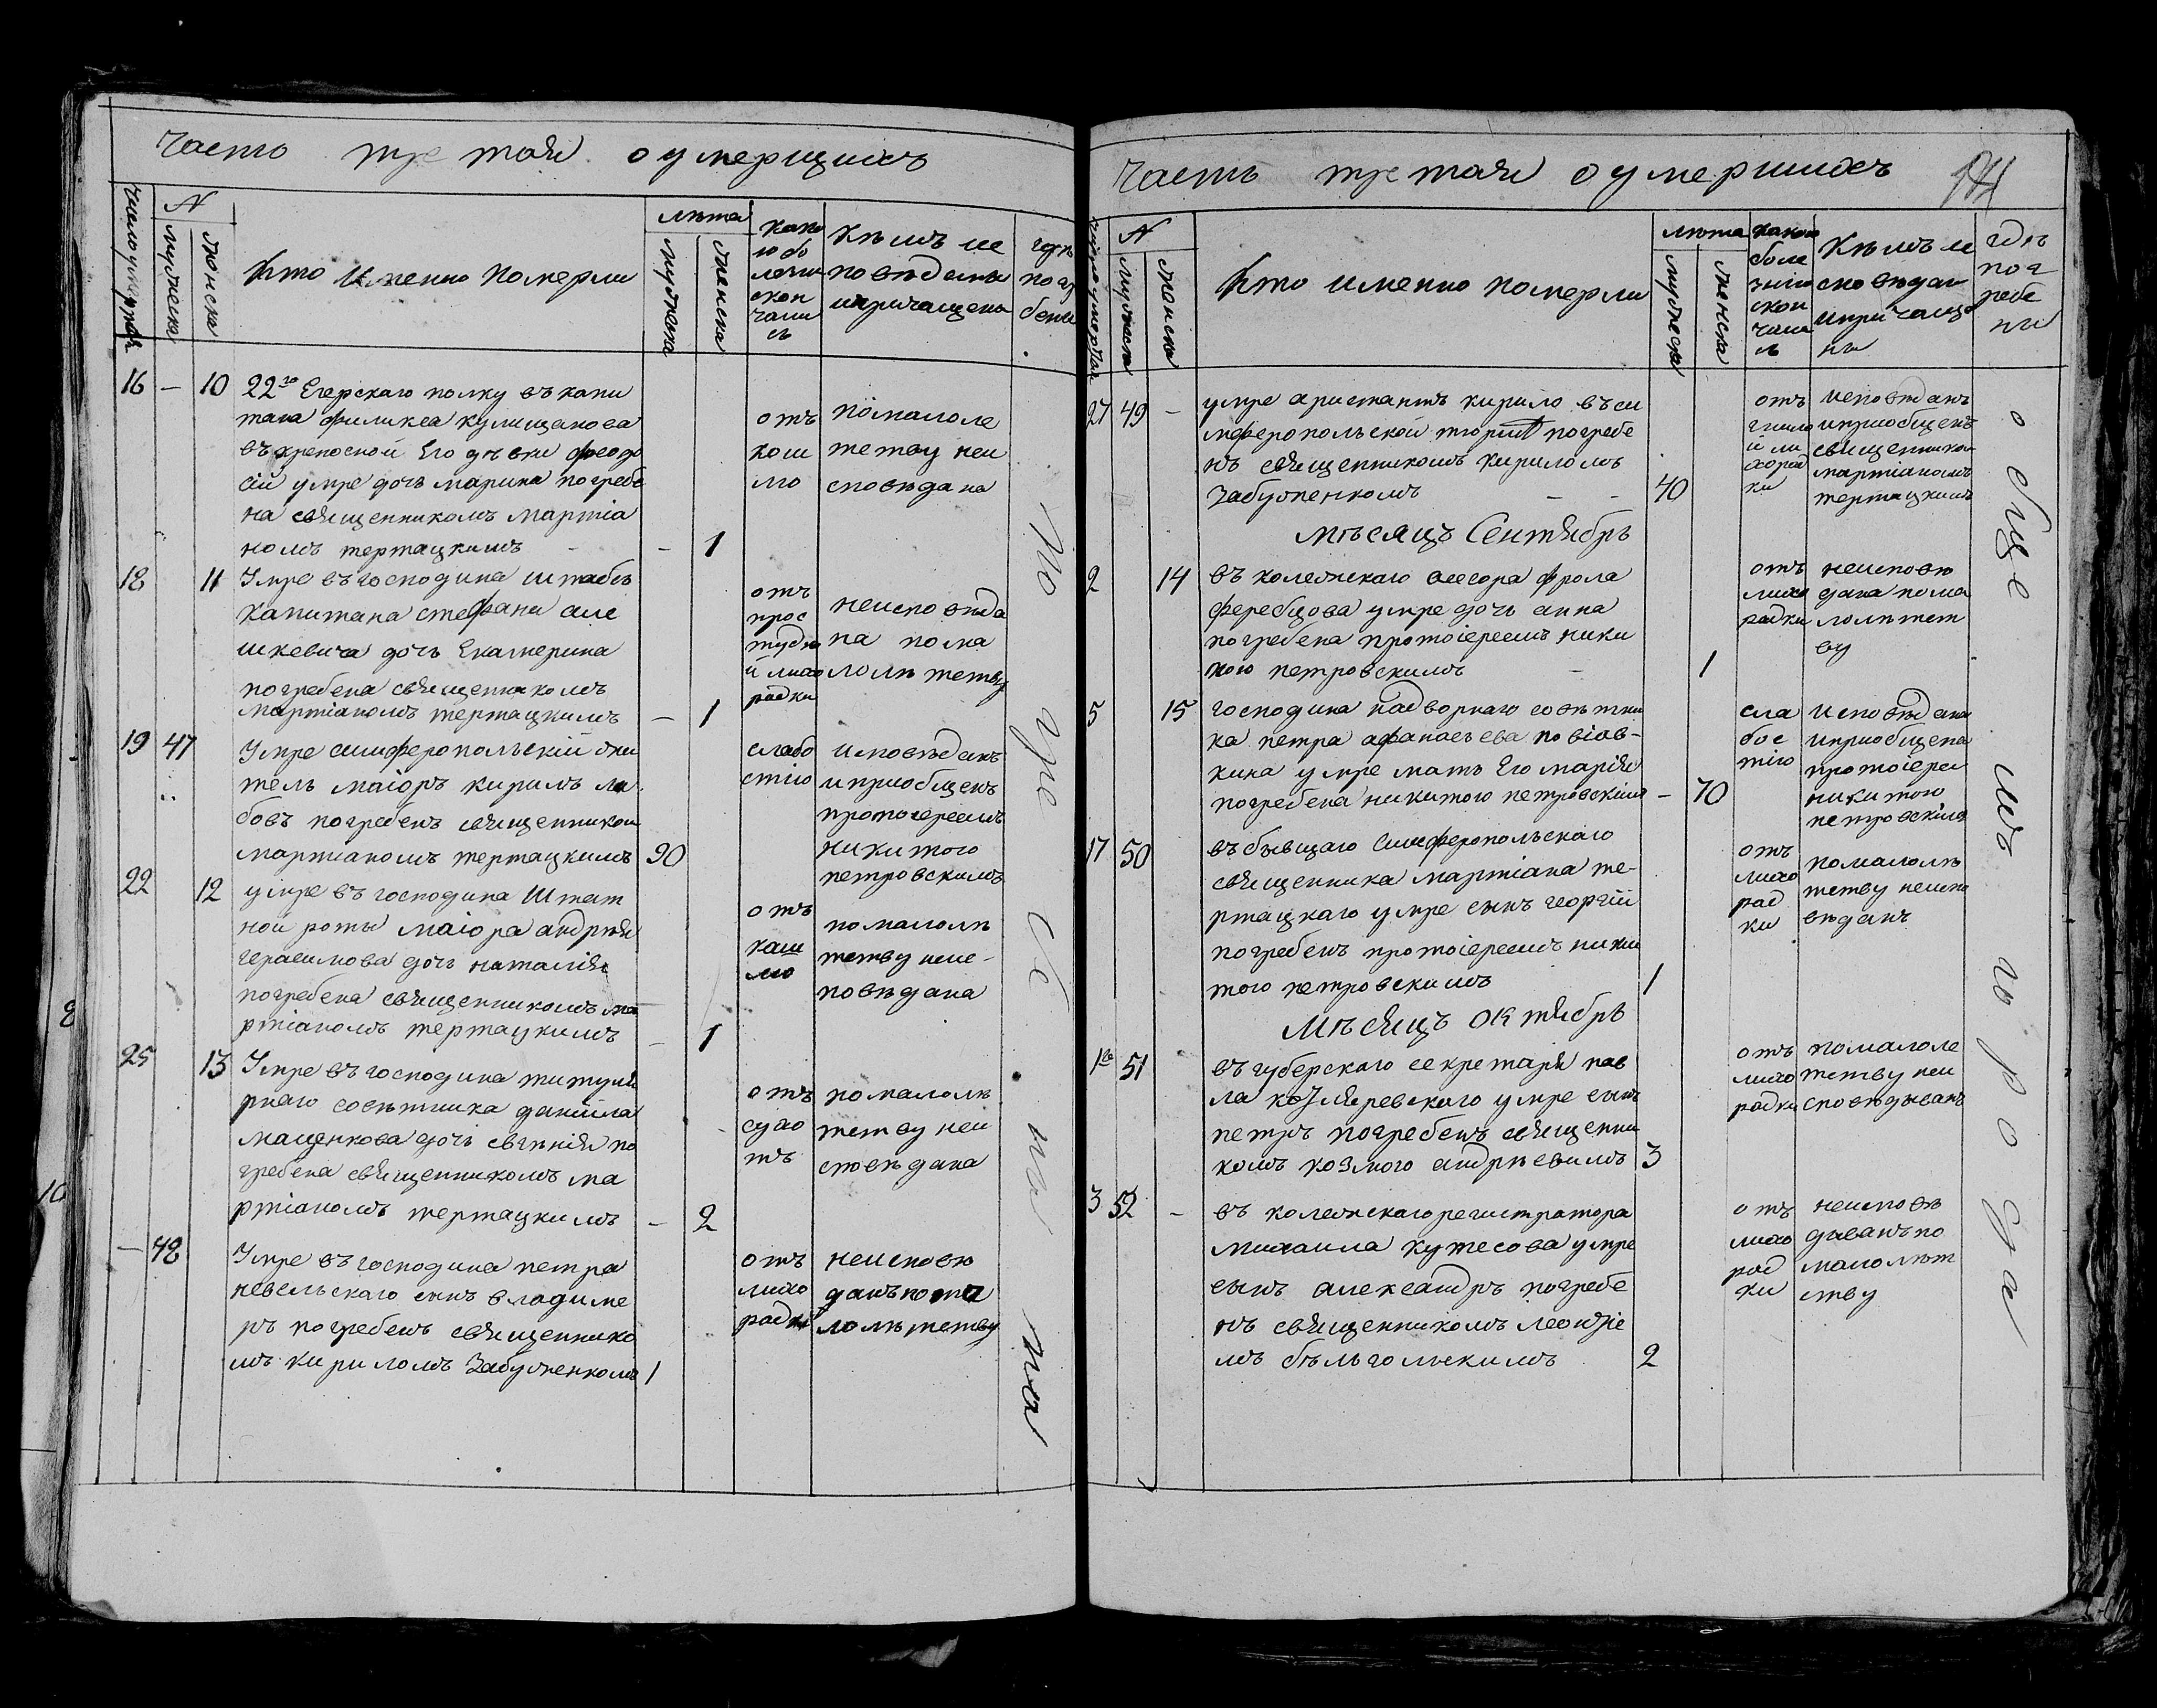 часть третая о умерщихъ
число умерших
N
мужеска
женска
кто именно померли
лѣта
мужеска
женска
како
ю бо
лезни
скон
чали
сь
Кѣмъ ис
поведаны
ипричащены
гдѣ
погр
бены
16 — 10 22го Егерскаго полку въ капи
тана филикса кулищанова
въ крепосной Его дѣвки феодо
сіи умре дочь марина погребе
на священникомъ мартіа
номъ тертацкимъ — 1
отъ
кош
лю
помалоле
тетву неи
споведана
18 11 Умре въ господина штабсъ
капитана стефана але
шкевича дочь Екатерина
погребена священникомъ
мартіаномъ тертацкимъ — 1
отъ
прос
тудно
й лихо
радки
неисповѣда
на по ма
лолѣтетву
19 47 Умре симферопольскій жи
тель маіоръ кирилъ ла
бовъ погребенъ священником
мартіаномъ тертацкимъ 90
слабо
стію
исповѣданъ
и приобщенъ
протоіереемъ
никитою
петровскимъ
22 12 умре въ господина Штат
ной роты маіора андрѣя
герасимова дочь наталія
погребена священникомъ ма
ртіаномъ тертацкимъ — 1
отъ
каш
лю
помалолѣ
тетву неис-
поведана
25 13 Умре въ господина титуля
рнаго совѣтника даніила
мащенкова дочь евгѣнія по
гребена священникомъ ма
ртіаномъ тертацкимъ — 2
отъ
сухо
тъ
помалолѣ
тетву неи
споведана
— 48 Умре въ господина петра
невельскаго сынъ владиме
ръ погребенъ священнико
мъ кириломъ Забуженкомъ 1
отъ
лихо
радки
неисповѣ
данъ по ма
лолѣтетву
часть третая о умершихъ
N
мужеска
женска
кто именно померли
лѣта
мужеска
женска
какою
боле
знію
скон
чали
сь
Кѣмъ и
сповѣдан
и причаще
ны
гдѣ
пог
ребе
ны
27 49 — умре аристантъ кирило въ си
мферопольской тюрмѣ погребе
нъ священникомъ кириломъ
Забуженкомъ — — 40
отъ
гнило
й ли
хорад
ки
исповѣданъ
и приобщенъ
священником
мартіаномъ
тертацкимъ
мѣсяцъ Сентябрь
2 14 въ колежскаго асесора фрола
феребцова умре дочь анна
погребена протоіереемъ ники
тою петровскимъ — 1
отъ
лихо
радки
неисповѣ
дана пома
лолѣтет
ву
5 15 господина надворнаго совѣтни
ка петра афанасьева
умре мать Его марія
погребена никитою петровскимъ — 70
сла
бос
тію
исповѣдана
и приобщена
протоіере
никитою
петровскимъ
17 50 въ бывщаго Симферопольскаго
священника мартіана те-
ртацкаго умре сынъ георгій
погребенъ протоіереемъ ники
тою петровскимъ 1
отъ
лихо
рад
ки
помалолѣ
тетву неиспо
вѣданъ
Мѣсяцъ октябрь
1го 51 въ губерскаго секретаря пав
ла козляревскаго умре сынъ
петръ погребенъ священни
комъ козмою андрѣевимъ 3
отъ
лихо
радки
помалоле
тетву неи
споведыванъ
3 52 — въ колежскаго регистратора
михаила кутесова умре
сынъ александръ погребе
нъ священникомъ леонтіе
мъ бѣльгольскимъ 2
отъ
лихо
рад
ки
неисповѣ
дыванъ по
малолѣт
ству
о бще мъ города